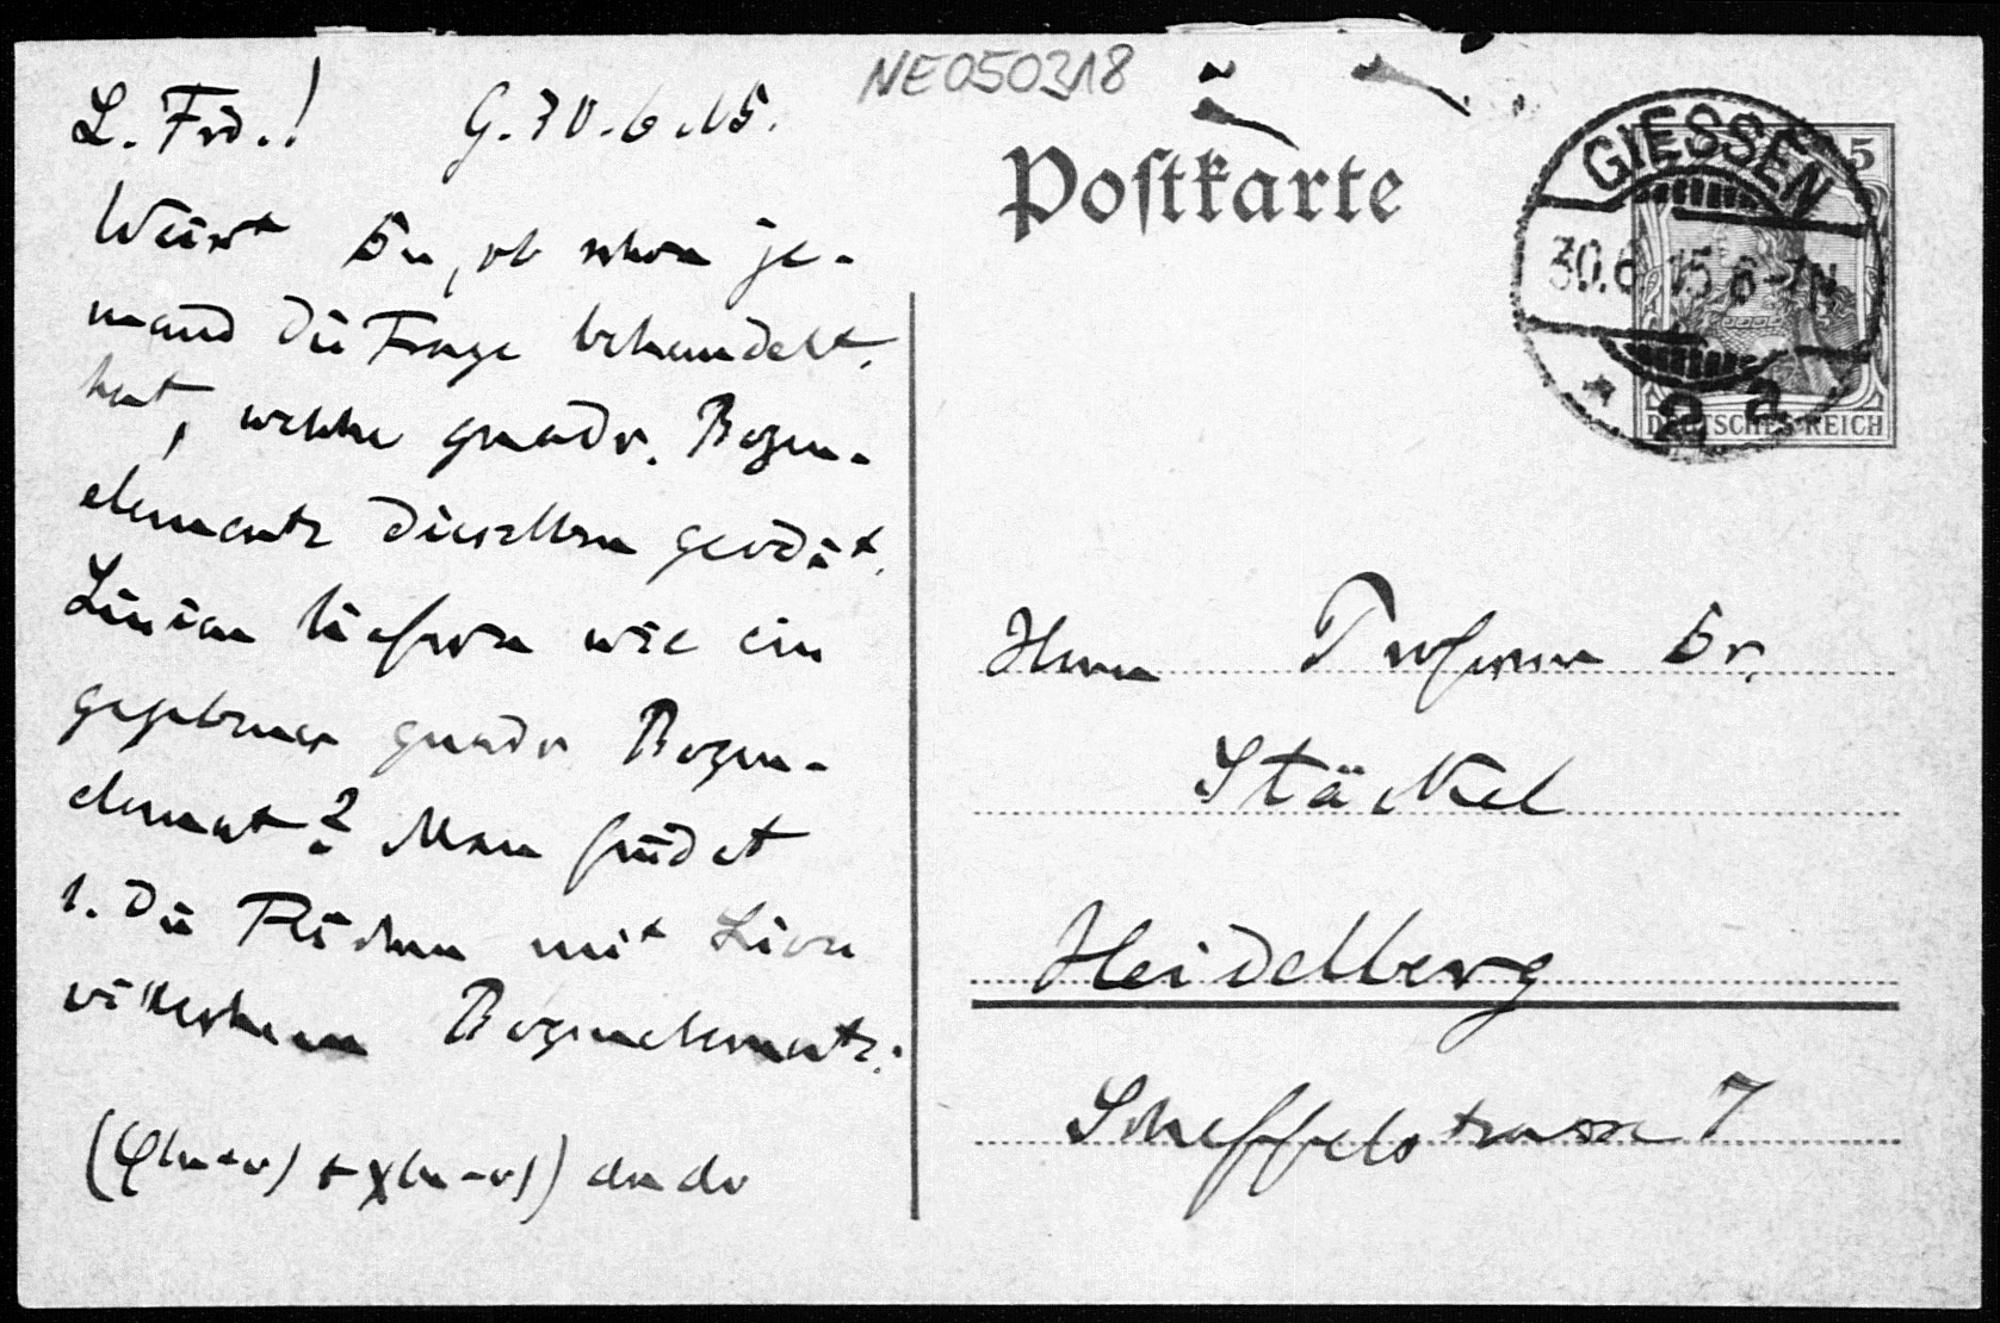 NE050318
L. Frd.! G. 30.6.15.
Weisst Du, ob schon je-
mand die Frage behandelt
hat, welche quadr. Bogen-
elemente dieselben geodät.
Linien liefern wie ein
gegebenes quadr. Bogen-
element? Man findet
1. die Flächen mit Liou
villeschem Bogenelemente:
(φ(u+v) + χ(u-v)) du dv
Postkarte
GIESSEN
30.6.15 6-7N
* 2 a
5
DEUTSCHES REICH
Herrn Professor Dr.
Stäckel
Heidelberg
Scheffelstrasse 7